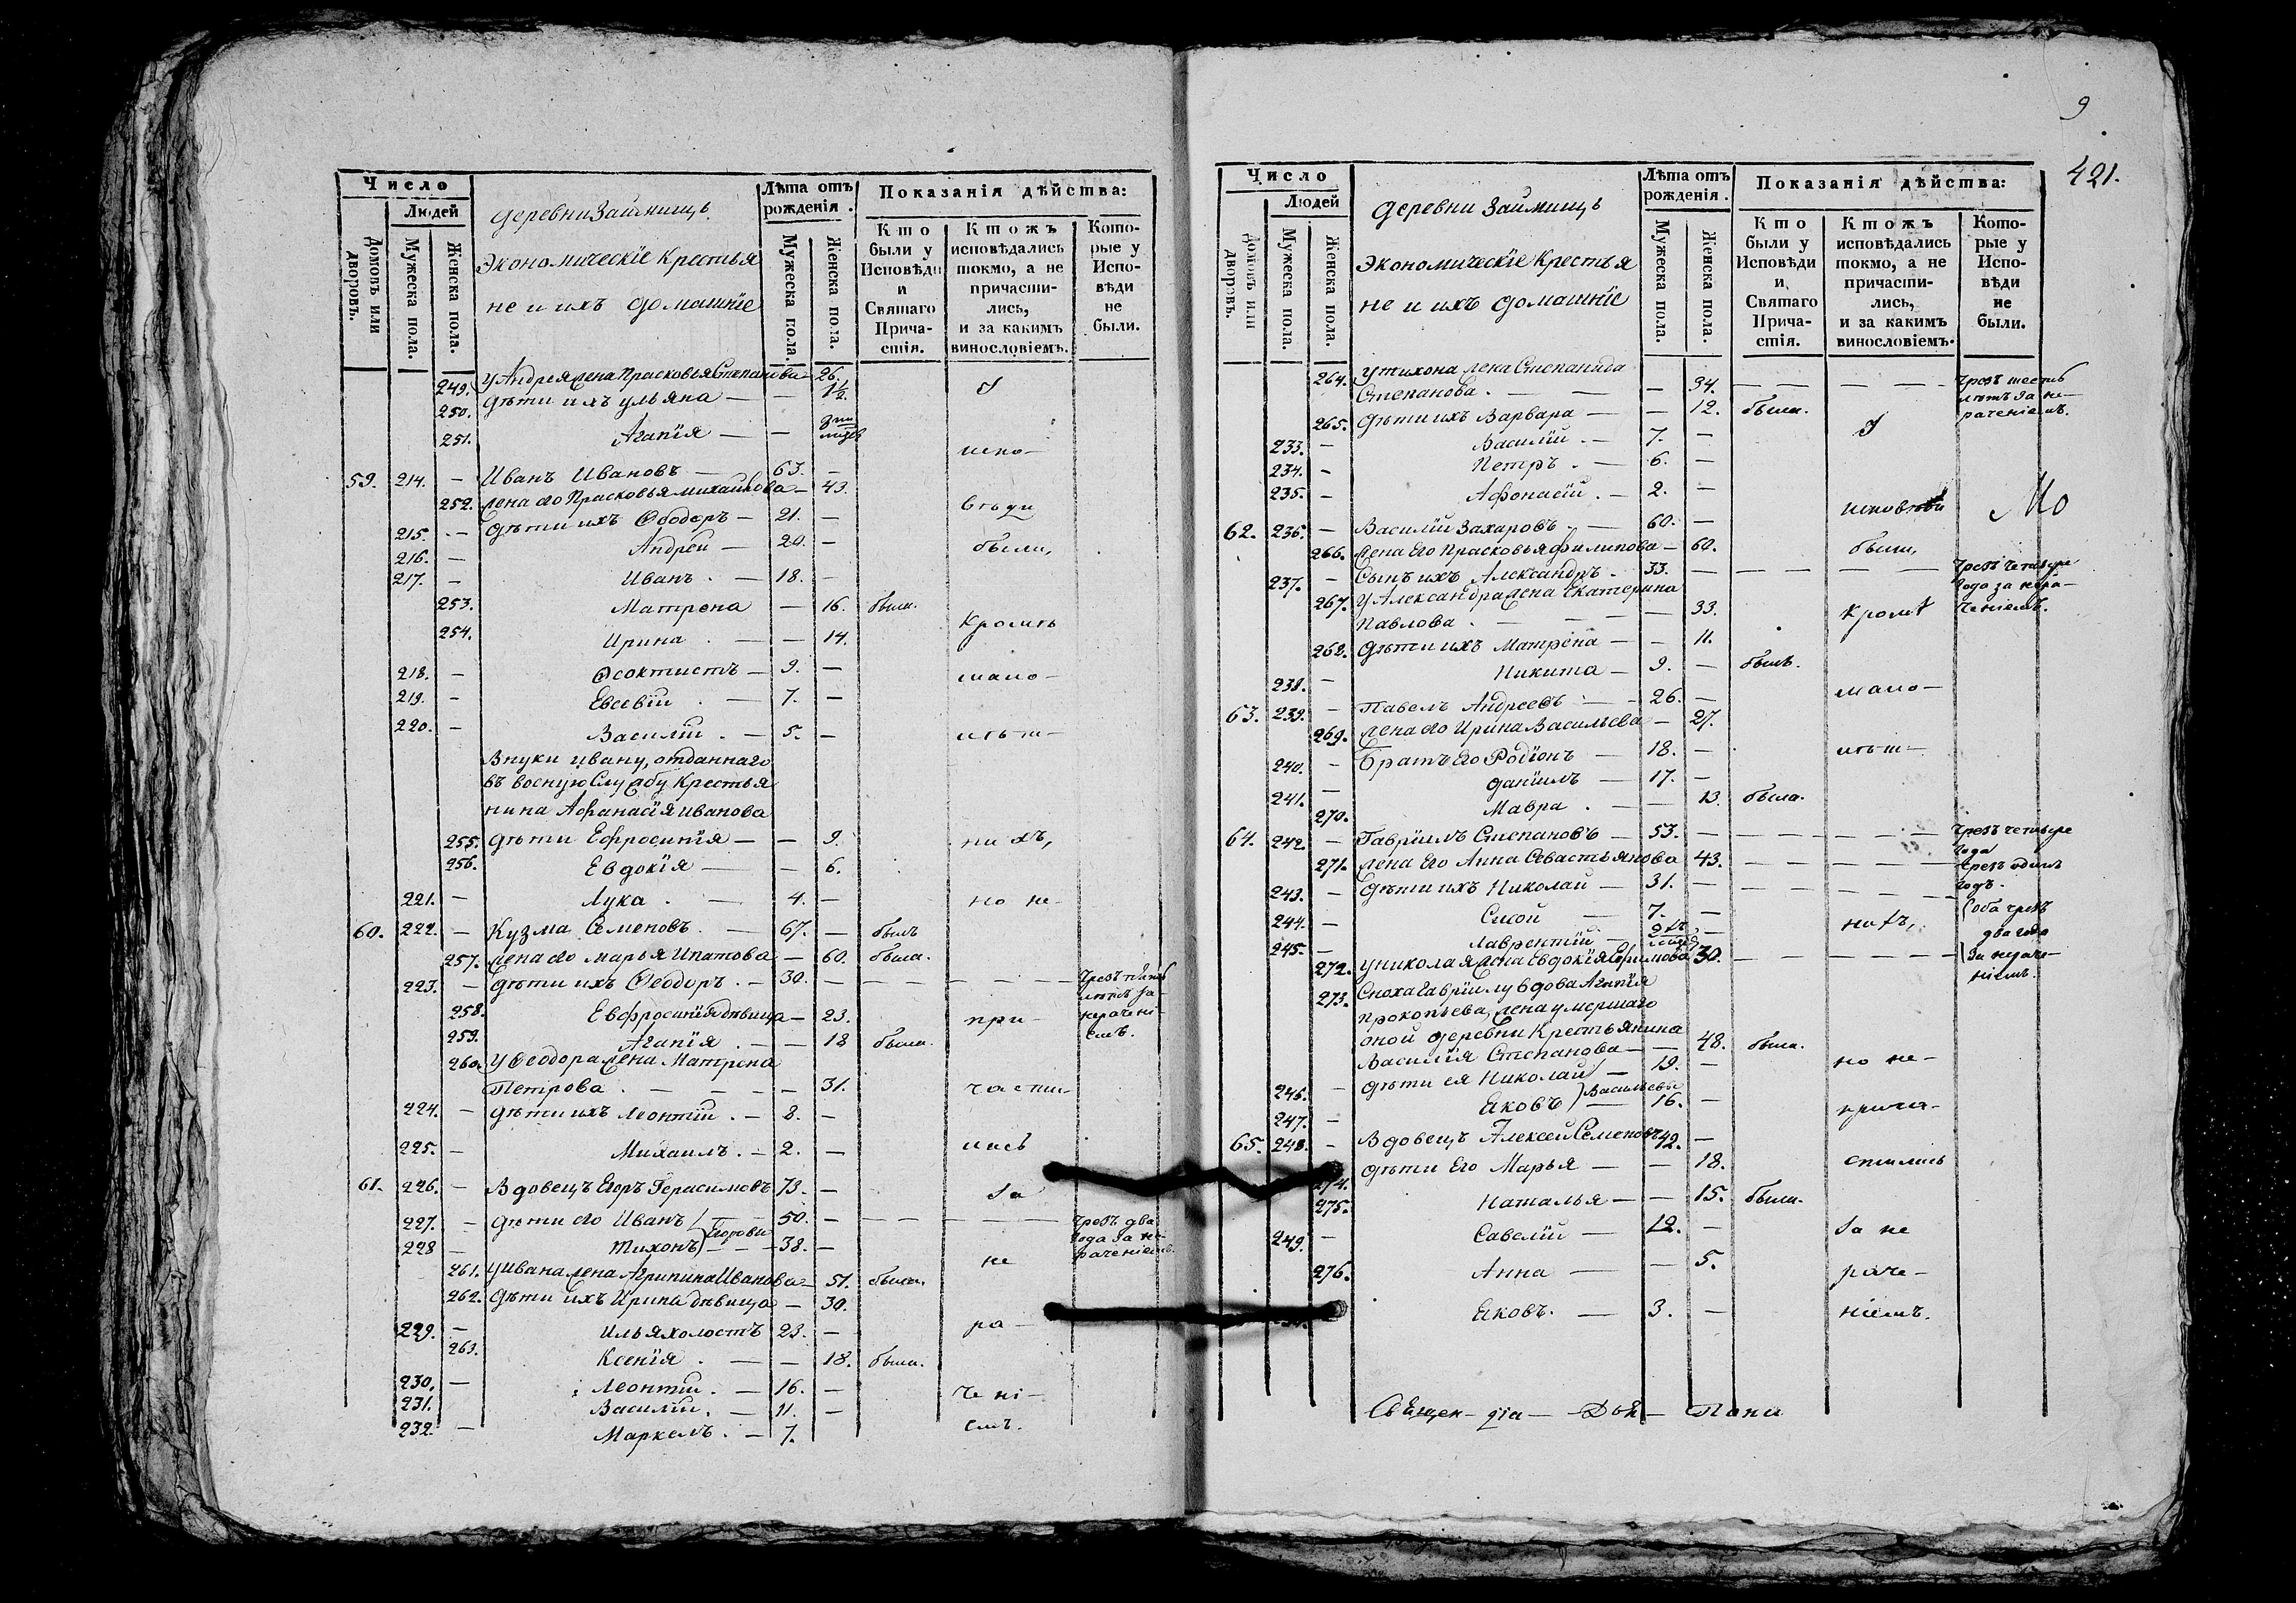 Число
Людей
Домовъ или дворовъ.
Мужеска пола.
Женска пола.
деревни Займищь
Экономическіе Крестья
не и ихъ домашніе
Лѣта отъ рожденія.
Мужеска пола.
Женска пола.
Показанія дѣйства:
Кто были у Исповѣди и Святаго Причастія.
Ктожъ исповѣдались токмо, а не причастились, и за какимъ винословіемъ.
Которые у Исповѣди не были.
249. У Андрея жена Прасковья Степанова 26.
250. дѣти ихъ Ульяна — — 1½
251. Агапія — —
59. 214. — Иванъ Ивановъ — 63. — испо-
252. жена его Прасковья Михайлова — 43.
215. — дѣти ихъ Ѳеодоръ — 21. — вѣди
216. — Андрей — 20. — были,
217. — Иванъ — 18. —
253. Матрена — 16. была.
254. Ирина — — 14. кромѣ
218. — Ѳеоктистъ — 9. — мало-
219. — Евсевій — 7. —
220. — Василій — 5. — лѣт-
Внуки Ивану, отданнаго
въ военую службу Крестья
нина Афанасія Иванова
255. дѣти Ефросинія — — 9. нихъ,
256. Евдокія — — 6.
221. — Лука — 4. — но не-
60. 222. — Кузма Семеновъ — 67. — былъ
257. жена его Марья Ипатова — 60. была.
223. — дѣти ихъ Ѳеодоръ — 30. — — — — — чрезъ пять лѣтъ за нераченіемъ.
258. Евфросинія дѣвица — 23. при-
259. Агапія — — 18 была.
260. У Ѳеодора жена Матрена
Петрова — — — — 31. части-
224. — дѣти ихъ Леонтій — 8. —
225. — Михаилъ — 2. — лись
61. 226. — Вдовецъ Егоръ Герасимовъ 73. — за
227. — дѣти его Иванъ 50. — — — — — чрезъ два года за нераченіемъ.
228 — Тихонъ) Егоровы — 38. —
261. У Ивана жена Агрипина Иванова — 51. была. не
262. дѣти ихъ Ирина дѣвица — 30.
229. — Илья холостъ 23. — ра-
263. Ксенія — — 18. была.
230. — Леонтій — 16. — чені-
231. Василій — 11. —
232. — Маркелъ — 7. емъ.
9
421.
Число
Людей
Домовъ или дворовъ.
Мужеска пола.
Женска пола.
деревни Займищь
Экономическіе Крестья
не и ихъ домашніе
Лѣта отъ рожденія.
Мужеска пола.
Женска пола.
Показанія дѣйства:
Кто были у Исповѣди и Святаго Причастія.
Ктожъ исповѣдались токмо, а не причастились, и за какимъ винословіемъ.
Которые у Исповѣди не были.
264. У Тихона жена Степанида
Степанова — — — 34. — — — — чрезъ шесть лѣтъ за нераченіемъ.
265. дѣти ихъ Варвара — — 12. была.
233. — Василій — 7. —
234. — Петръ — 6. —
235. — Афонасій — 2. —
62. 236. — Василій Захаровъ — 60. — исповѣди
266. жена его Прасковья Филипова — 60. были,
237. — Сынъ ихъ Александръ — 33. — — — — — чрезъ четыре года за нераченіемъ.
267. У Александра жена Екатерина
Павлова — — — — 33. кромѣ
268. дѣти ихъ Матрена — — 11.
238. — Никита — 9. — былъ.
63. 239. — Павелъ Андреевъ — 26. — мало-
269. жена его Ирина Васильева — 27.
240. — Братъ его Родіонъ — 18. — лѣт-
241. — Даніилъ — 17. —
270. Мавра — — 13. была.
64. 242. — Гавріилъ Степановъ — 53. — — — — — чрезъ четыре года
271. жена его Анна Севастьянова 43. — — — — чрезъ одинъ годъ.
243. — дѣти ихъ Николай — 31. — — — — —
244. — Сисой — 7. — нихъ, оба чрезъ два года
245. — Лаврентій —
272. У Николая жена Евдокія Ефимова 30. — — — — — за нераченіемъ.
273. Сноха Гавріилу вдова Агапія
Прокопьева, жена умершаго
оной деревни Крестьянина
Василія Степанова — — 48. была. но не-
246. — дѣти ея Николай — 19. —
247. — Яковъ) Васильевы — 16. — прича-
65. 248. — Вдовецъ Алексей Семеновъ 42. —
274. дѣти его Марья — — 18. стились
275. Наталья — — 15. была.
249. — Савелій — 12. — за не
276. Анна — — 5. раче-
Яковъ. — 3. — ніемъ.
Мо
Священ-